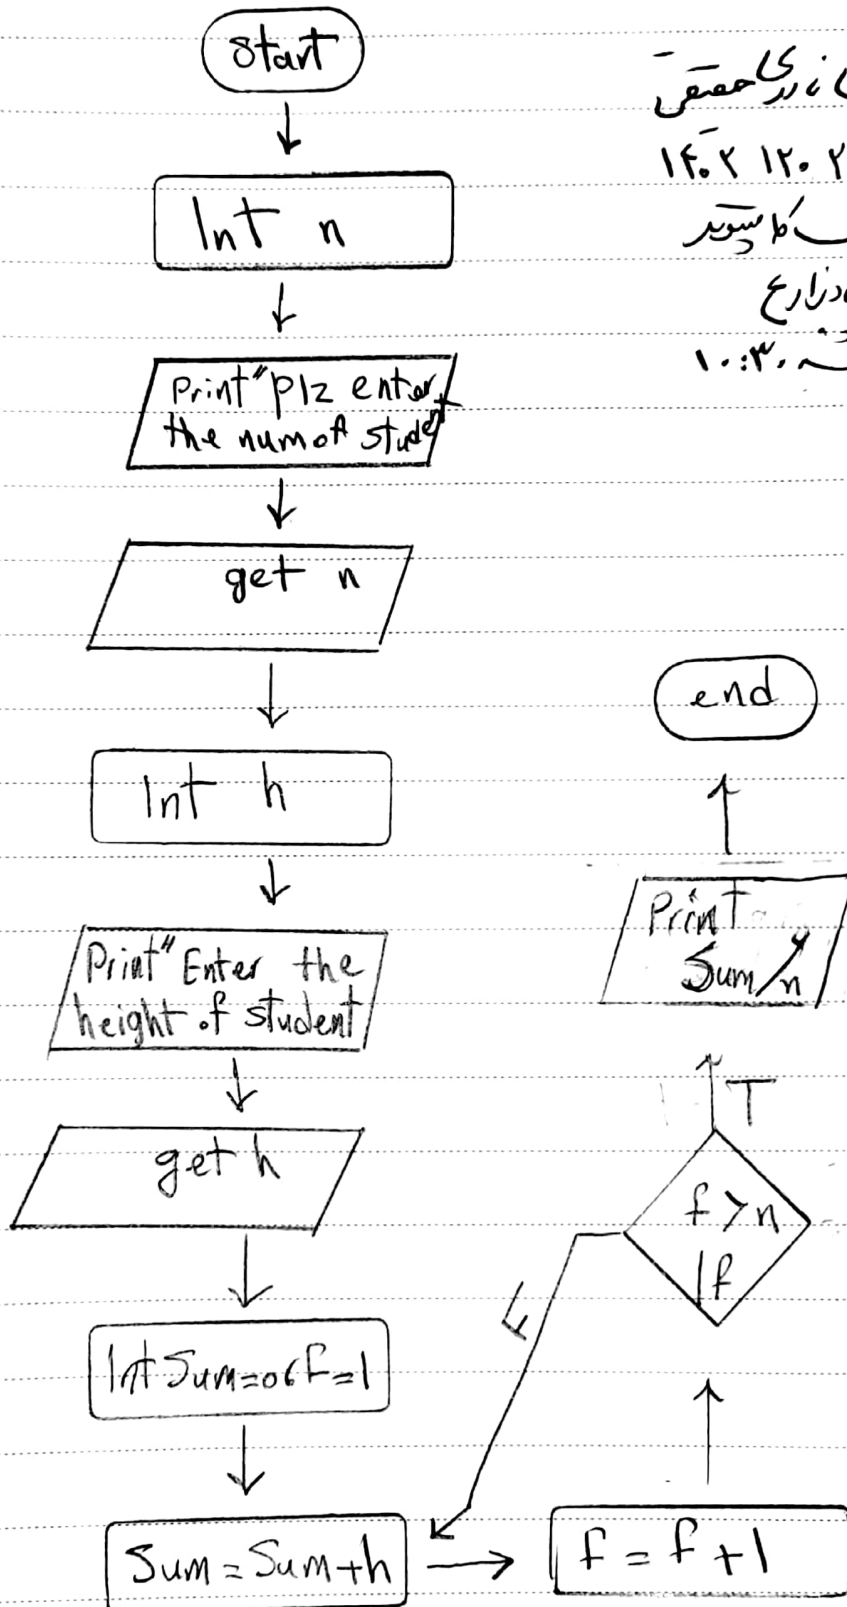 Start
Int n
Print "plz enter
the num of student
get n
Int h
Print "Enter the
height of student
get h
Int Sum=0، f=1
Sum = Sum+h
f = f+1
f > n
If
F
T
Print
Sum/n
end
حقیقی
کامپیوتر
زارع
۱۰:۳۰